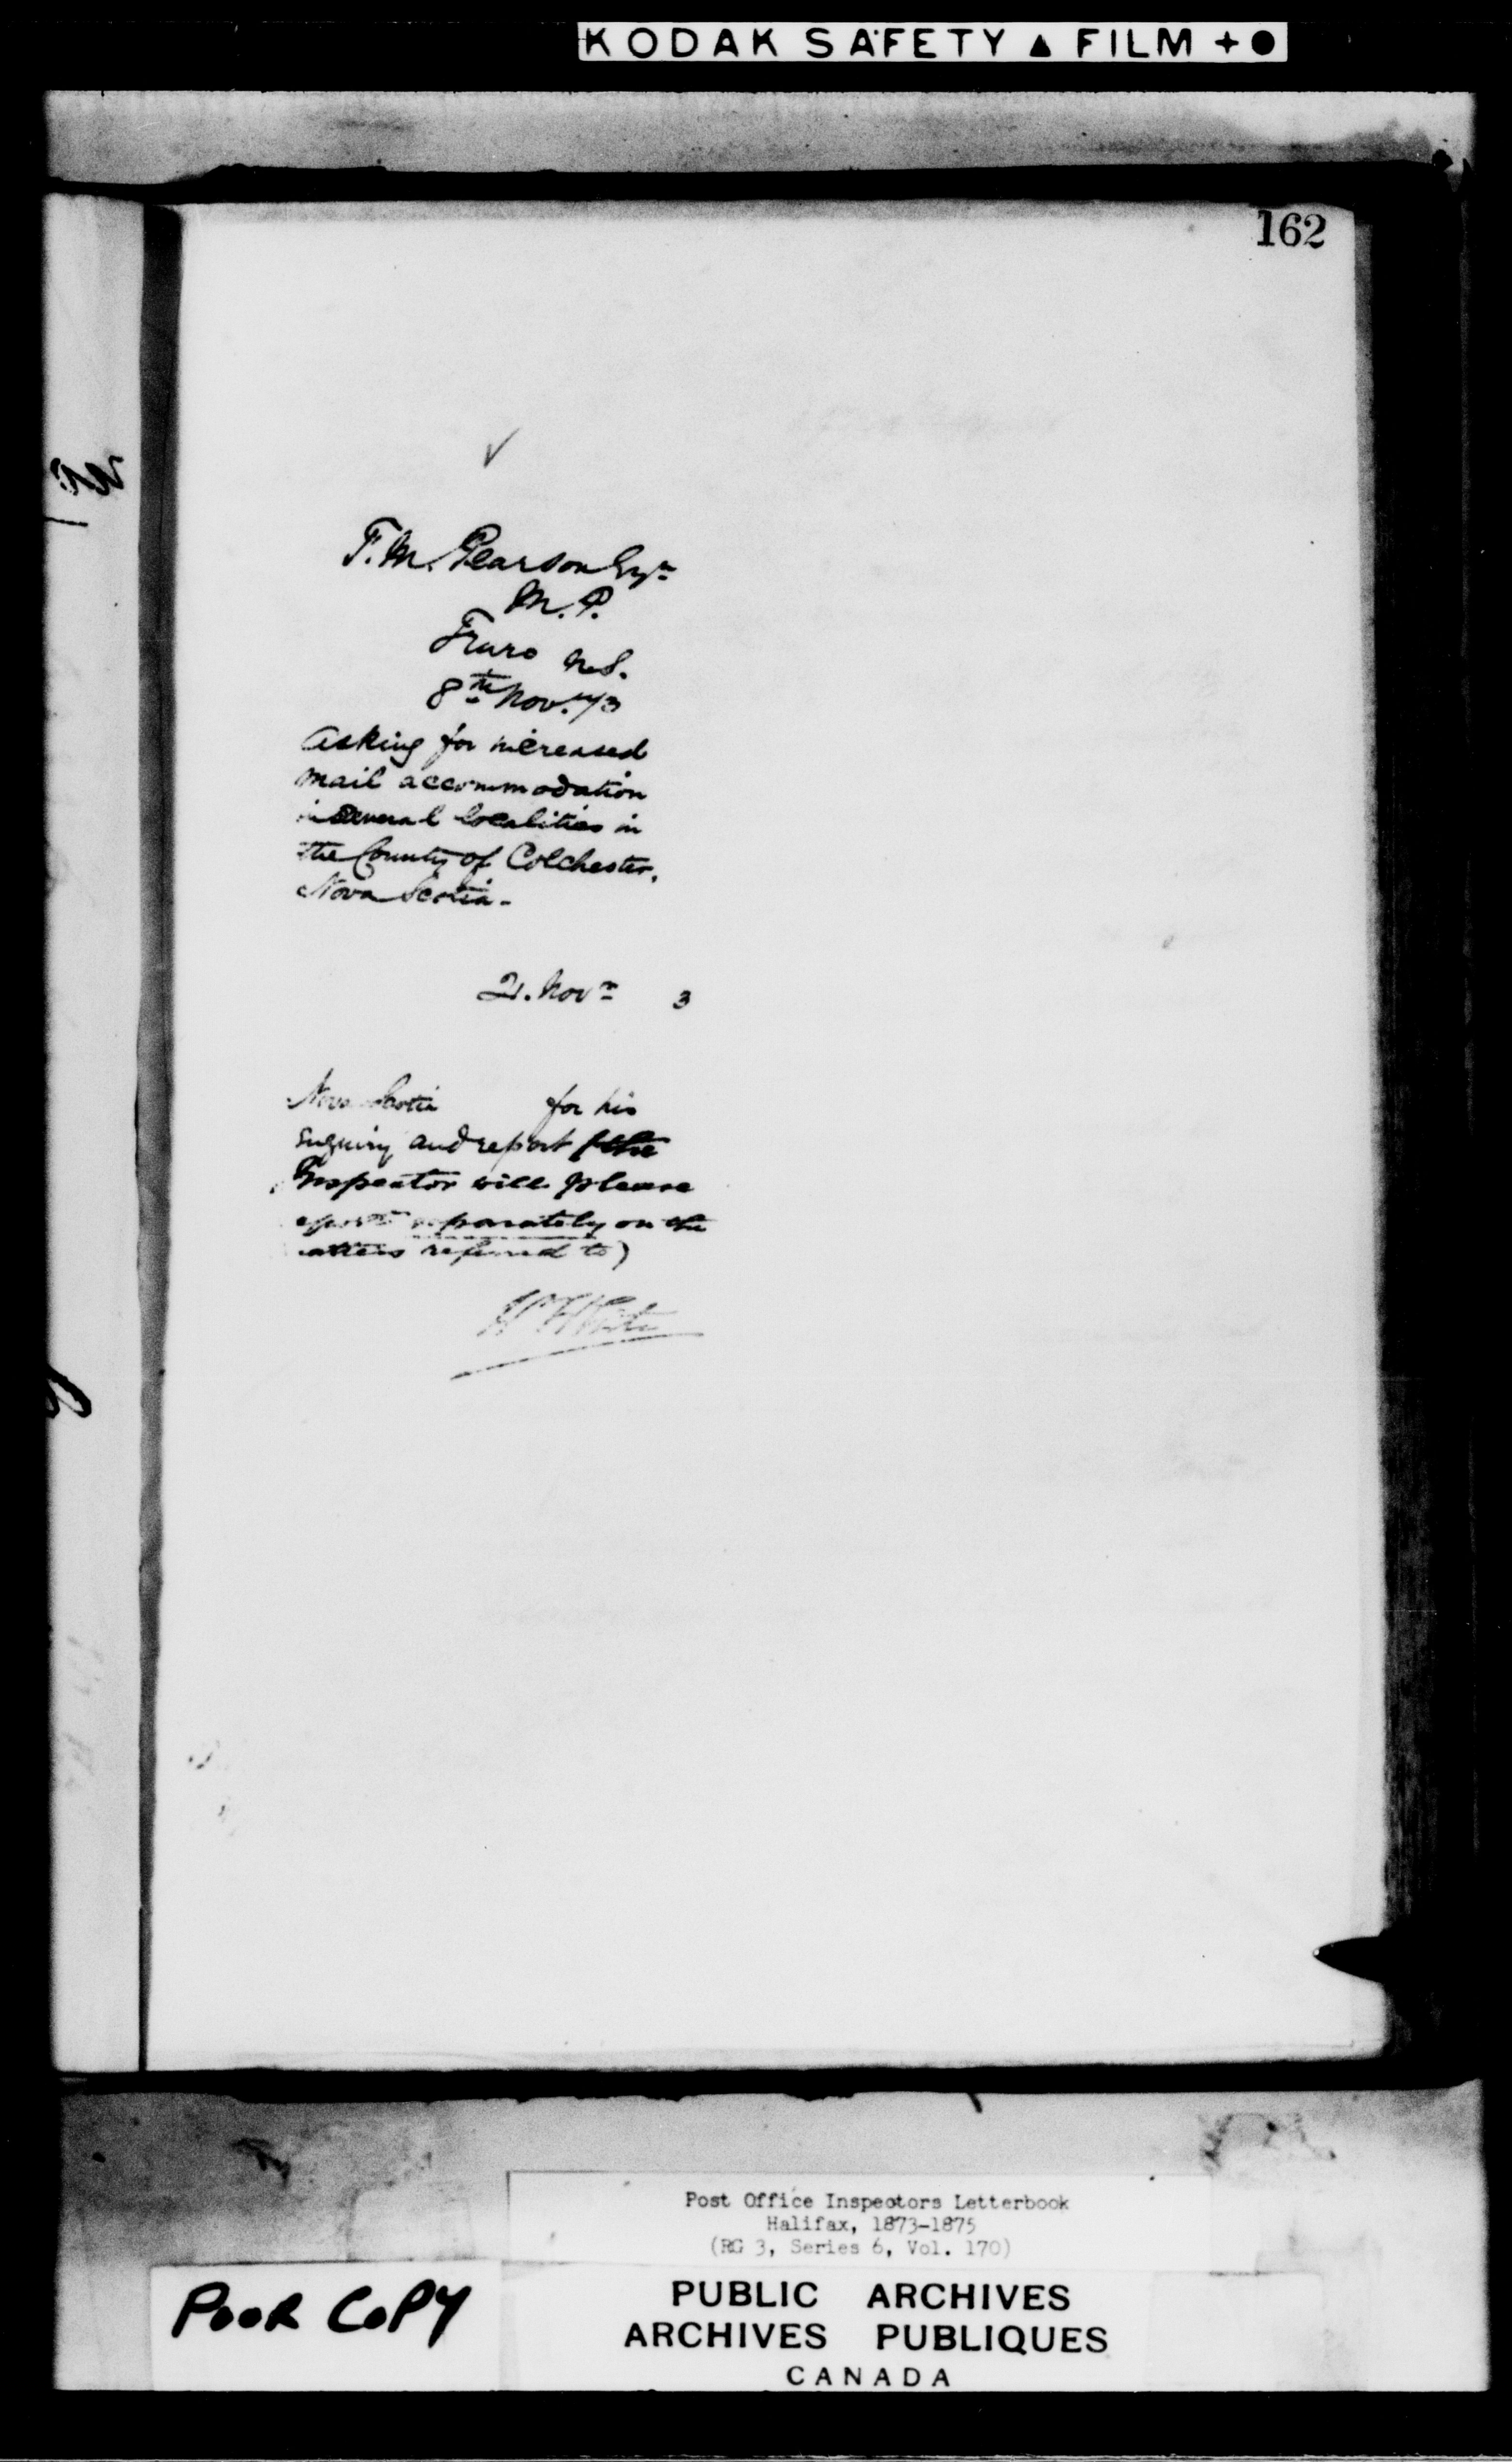 KODAK SAFETY ▲ FILM + ●
162
✓
F. M. Pearson Esqre
M. P.
Truro N.S.
8th Nov. /73
Asking for increased
mail accommodation
in several localities in
the County of Colchester,
Nova Scotia -
21. Novr 3
Nova Scotia for his
enquiry and report (the
Inspector will please
report separately on the
matters referred to)
Post Office Inspectors Letterbook
Halifax, 1873-1875
(RG 3, Series 6, Vol. 170)
POOR COPY
PUBLIC ARCHIVES
ARCHIVES PUBLIQUES
CANADA